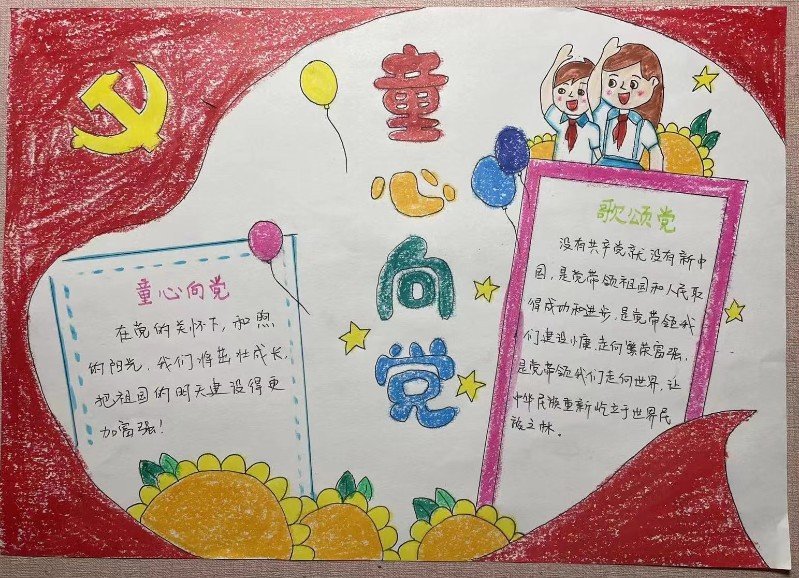 童心向党
童心向党
在党的关怀下，和煦
的阳光，我们将茁壮成长，
把祖国的明天建设得更
加富强！
歌颂党
没有共产党就没有新中
国，是党带领祖国和人民取
得成功和进步，是党带领我
们建设小康，走向繁荣富强，
是党带领我们走向世界，让
中华民族重新屹立于世界民
族之林。